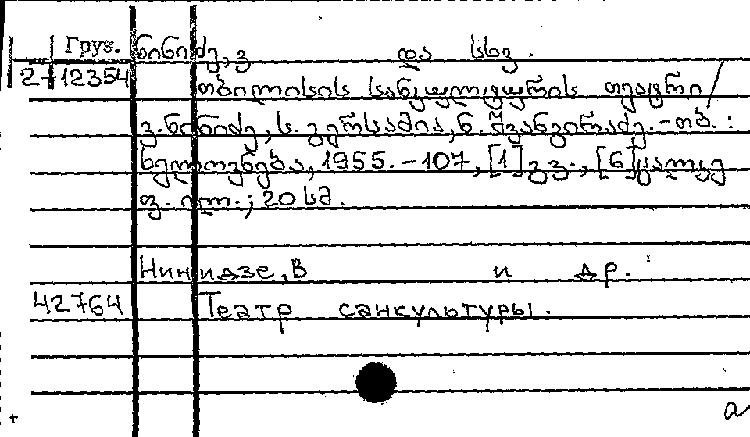 Груз. ნინიძე, ვ და სხვ.
2-12354 თბილისის სანკულტურის თეატრი /
ვ. ნინიძე, ს. გერსამია, ნ. შვანგირაძე. - თბ. :
ხელოვნება, 1955. - 107, [1] გვ., [6] ცალკე
ფ. ილ. ; 20 სმ.
Нинидзе, В и др.
42764 Театр санкультуры.